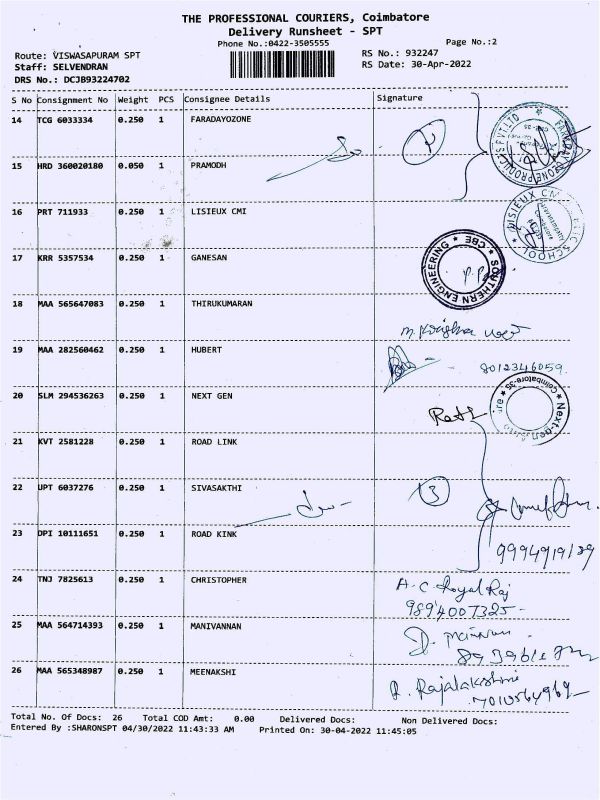 THE PROFESSIONAL COURIERS, Coimbatore
Delivery Runsheet - SPT
Phone No.:0422-3505555
Page No.:2
Route: VISWASAPURAM SPT
RS No.: 932247
Staff: SELVENDRAN
RS Date: 30-Apr-2022
DRS No.: DCJB93224702
S No Consignment No Weight PCS Consignee Details Signature
14 TCG 6033334 0.250 1 FARADAYOZONE
15 HRD 360020180 0.050 1 PRAMODH
16 PRT 711933 0.250 1 LISIEUX CMI
17 KRR 5357534 0.250 1 GANESAN
SOUTHERN ENGINEERING * CBE *
18 MAA 565647083 0.250 1 THIRUKUMARAN
19 MAA 282560462 0.250 1 HUBERT
8012346059
20 SLM 294536263 0.250 1 NEXT GEN
Coimbatore-35 * Next-gen
21 KVT 2581228 0.250 1 ROAD LINK
22 UPT 6037276 0.250 1 SIVASAKTHI
13
23 DPI 10111651 0.250 1 ROAD KINK
24 TNJ 7825613 0.250 1 CHRISTOPHER
A.C. Royal Raj
9894007325
25 MAA 564714393 0.250 1 MANIVANNAN
26 MAA 565348987 0.250 1 MEENAKSHI
R. Rajalakshmi
Total No. Of Docs: 26 Total COD Amt: 0.00 Delivered Docs: Non Delivered Docs:
Entered By :SHARONSPT 04/30/2022 11:43:33 AM Printed On: 30-04-2022 11:45:05